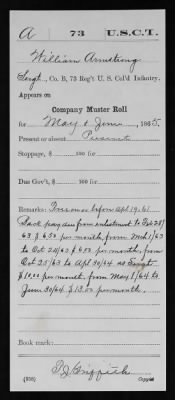 A 73 U.S.C.T.
William Armstrong
Sergt., Co. B, 73 Reg't U. S. Col'd Infantry.
Appears on
Company Muster Roll
for May & June, 1865.
Present or absent Present
Stoppage, $ 100 for
Due Gov't, $ 100 for
Remarks: Free man before Apl 19/61
Back pay due from enlistment to Feb 28/
63 $ 6.00 per month, from Mch 1/63
to Oct 24/63 $ 6.00 per month, from
Oct 25/63 to Apl 30/64 as Sergt
$10.00 per month, from May 1/64 to
June 30/64 $ 13.00 per month.
Book mark:
Griffith
(358) Copyist